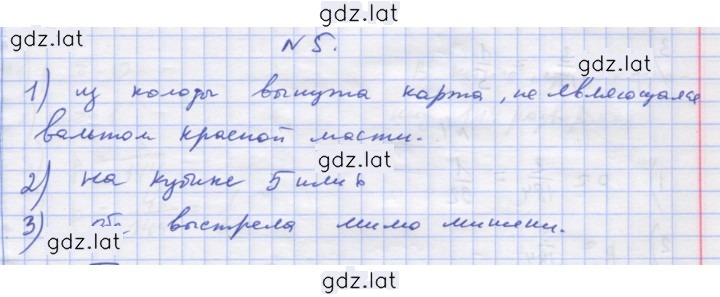 gdz.lat
N 5.
gdz.lat
1) из колоды вынута карта, не являющаяся
gdz.lat
вальтом красной масти.
gdz.lat
2) на кубике 5 или 6
3) выстрела мимо мишени.
gdz.lat
gdz.lat